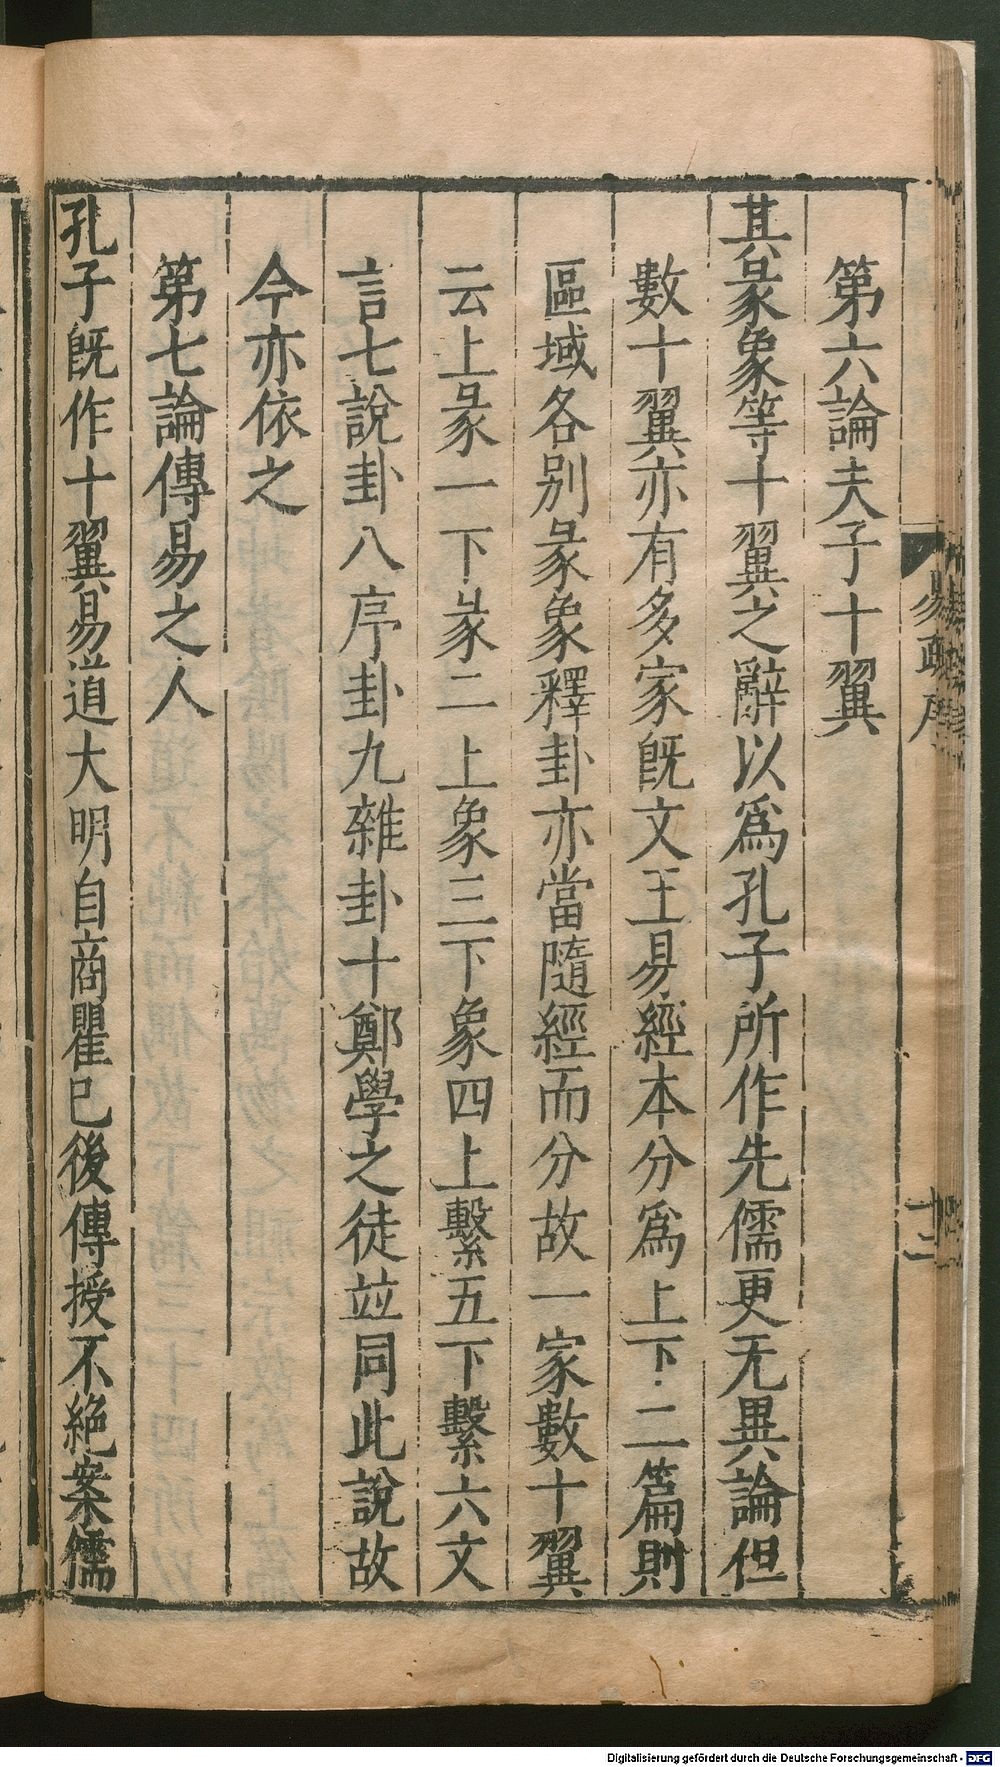 第六論夫子十翼
其彖象等十翼之辭以爲孔子所作先儒更无異論但
數十翼亦有多家既文王易經本分爲上下二篇則
區域各別彖象釋卦亦當隨經而分故一家數十翼
云上彖一下彖二上象三下象四上繫五下繫六文
言七說卦八序卦九雜卦十鄭學之徒並同此說故
今亦依之
第七論傳易之人
孔子既作十翼易道大明自商瞿已後傳授不絶案儒
易疏序
十二
Digitalisierung gefördert durch die Deutsche Forschungsgemeinschaft - DFG